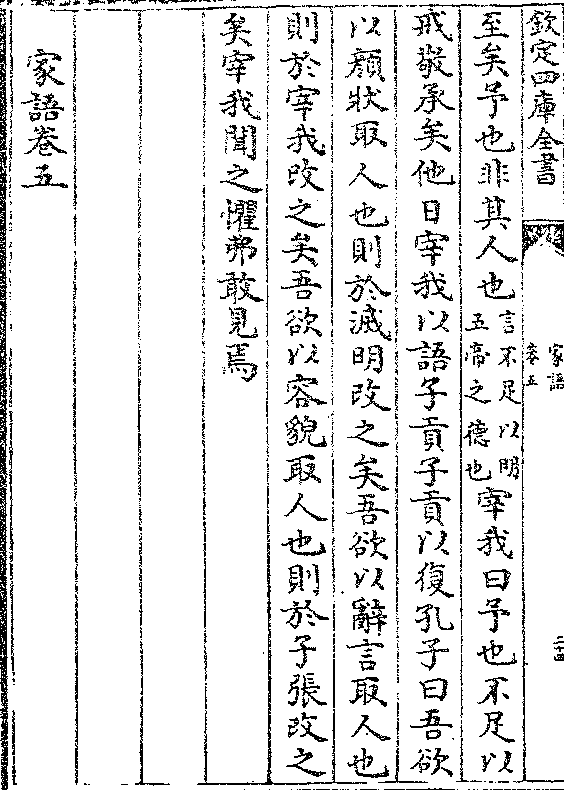 欽定四庫全書
家語
卷五
二十四
至矣予也非其人也言不足以明五帝之德也宰我曰予也不足以
戒敬承矣他日宰我以語子貢子貢以復孔子曰吾欲
以顏狀取人也則於滅明改之矣吾欲以辭言取人也
則於宰我改之矣吾欲以容貌取人也則於子張改之
矣宰我聞之懼弗敢見焉
家語卷五